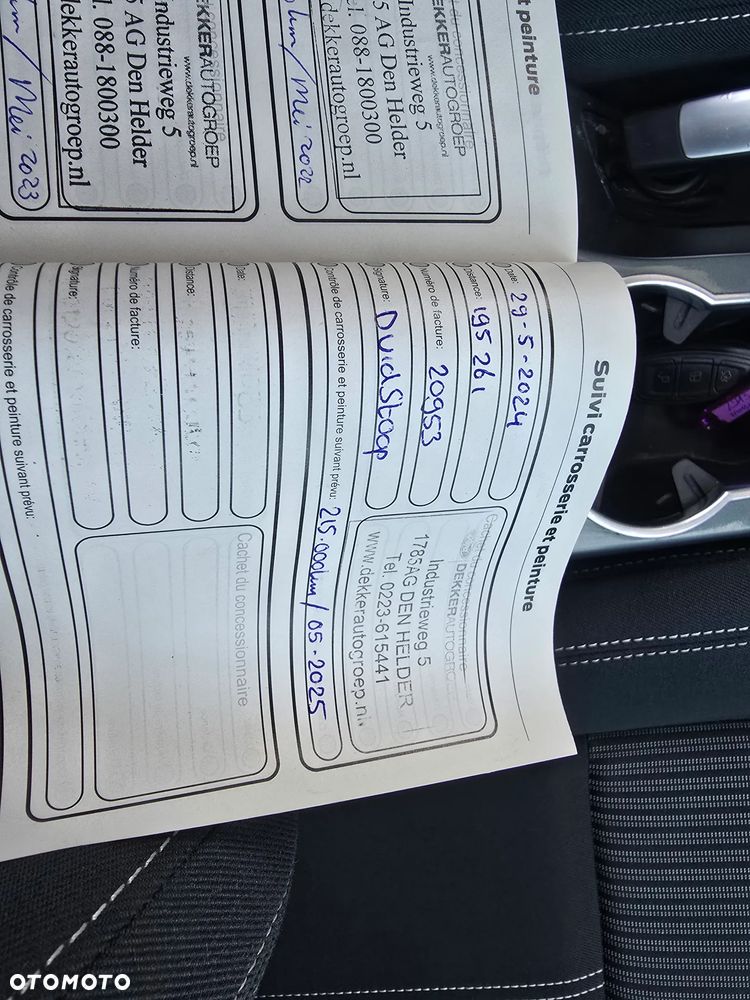 t peinture
DEKKERAUTOGROEP
www.dekkerautogroep.nl
Industrieweg 5
5 AG Den Helder
tel. 088-1800300
dekkerautogroep.nl
km/Mei 2022
concessionnaire
DEKKERAUTOGROEP
www.dekkerautogroep.nl
Industrieweg 5
AG Den Helder
l. 088-1800300
dekkerautogroep.nl
km/Mei 2023
Suivi carrosserie et peinture
Date: 29-5-2024
Distance: 195261
Numéro de facture: 20953
Signature:
Cachet du concessionnaire
DEKKERAUTOGROE
Industrieweg 5
1785AG DEN HELDER
Tel. 0223-615441
www.dekkerautogroep.nl
Contrôle de carrosserie et peinture suivant prévu: 215.000km/05-2025
Date:
Distance:
Numéro de facture:
Signature:
Cachet du concessionnaire
Contrôle de carrosserie et peinture suivant prévu:
OTOMOTO